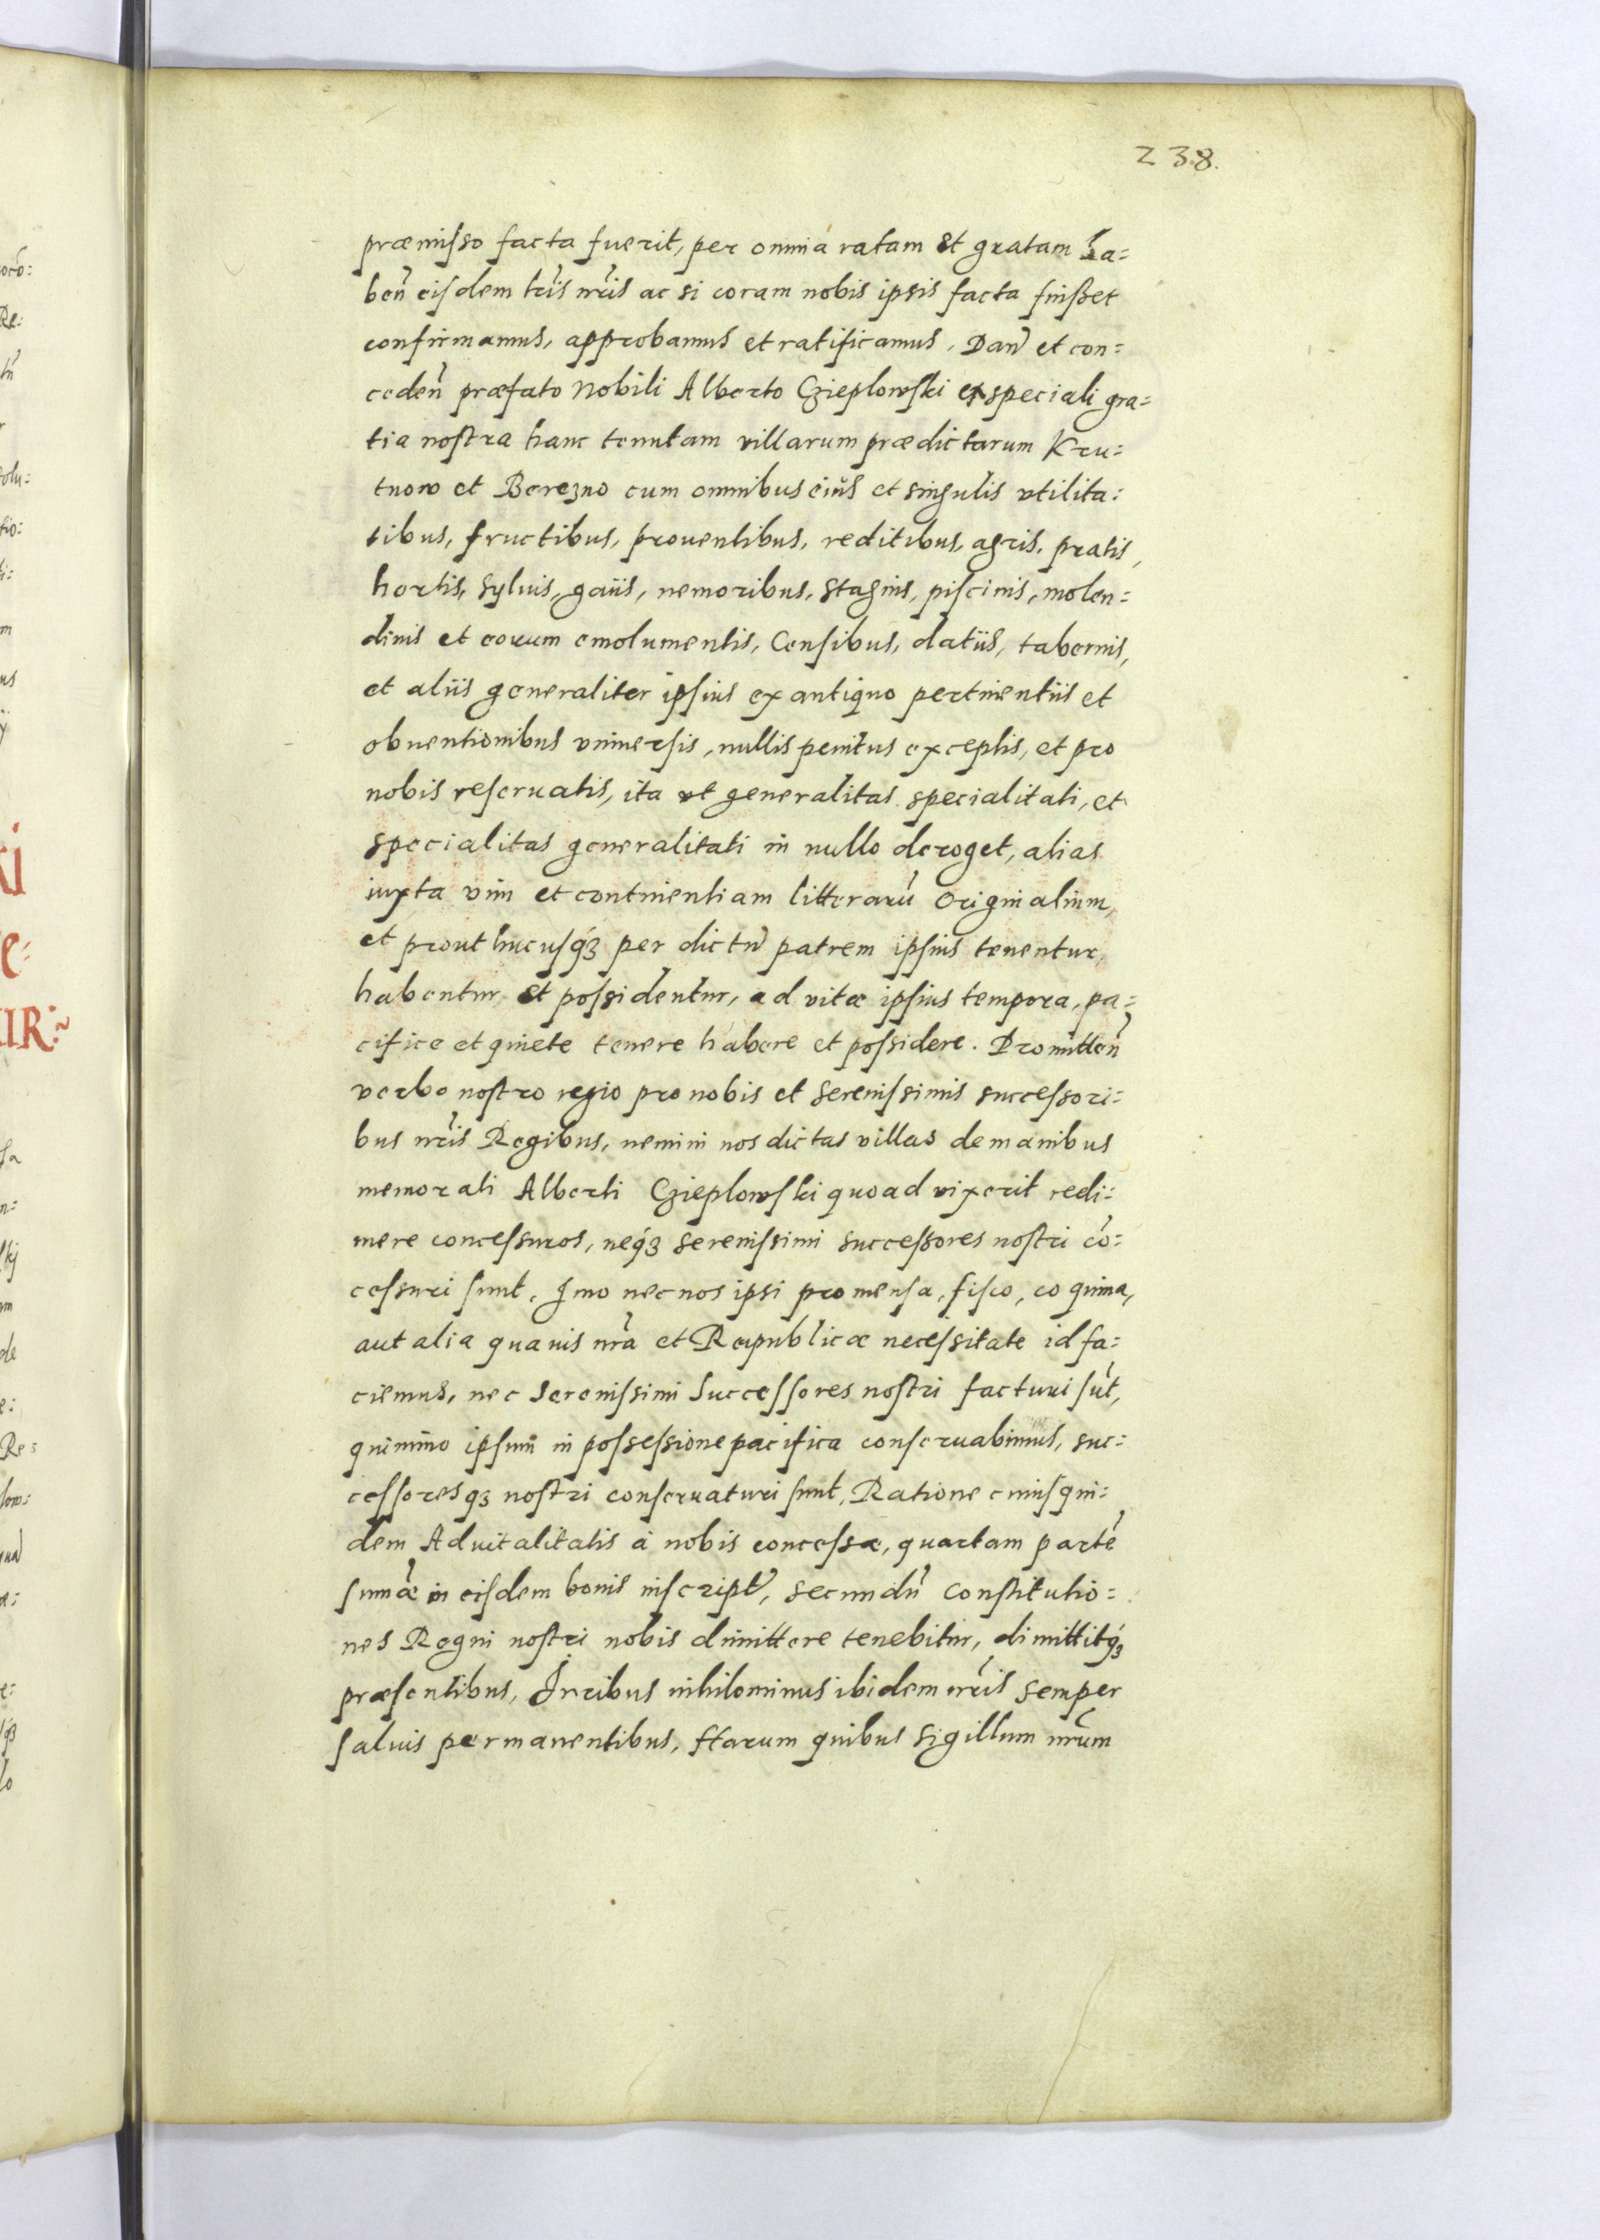 238.
præmisso facta fuerit, per omnia ratam et gratam ha=
ben̄ eisdem lr̄is nr̄is ac si coram nobis ipsis facta fuisset
confirmamus, approbamus et ratificamus. Dan̄ et con=
ceden̄ præfato Nobili Alberto Czieplowski ex speciali gra=
tia nostra hanc tenutam villarum prædictarum Kru=
tnow et Berezno cum omnibus eius et singulis vtilita=
tibus, fructibus, prouentibus, reditibus, agris, pratis,
hortis, syluis, gaiis, nemoribus, stagnis, piscinis, molen=
dinis et eorum emolumentis, Censibus, datiis, tabernis,
et aliis generaliter ipsius ex antiquo pertinentiis et
obuentionibus vniuersis, nullis penitus exceptis, et pro
nobis reseruatis, ita vt generalitas specialitati, et
specialitas generalitati in nullo deroget, alias
iuxta vim et continentiam litterarū Originalium,
et prout hucusq3 per dictū patrem ipsius tenentur,
habentur et possidentur, ad vitæ ipsius tempora, pa=
cifice et quiete tenere habere et possidere. Promitten̄
verbo nostro regio pro nobis et serenissimis successori=
bus nr̄is Regibus, nemini nos dictas villas de manibus
memorati Alberti Czieplowski quoad vixerit redi=
mere concessuros, neq3 serenissimi successores nostri cō=
cessuri sunt. Imo nec nos ipsi pro mensa, fisco, coquina,
aut alia quauis nr̄a et Reipublicæ necessitate id fa=
ciemus, nec Serenissimi Successores nostri facturi sūt,
quinimo ipsum in possessione pacifica conseruabimus, suc=
cessoresq3 nostri conseruaturi sunt, Ratione cuiusqui=
dem Aduitalitatis à nobis concessæ, quartam partē
sum̄æ in eisdem bonis inscript̄, secundū Constitutio=
nes Regni nostri nobis dimittere tenebitur, dimittitq3
præsentibus, Iuribus nihilominus ibidem nr̄is semper
saluis permanentibus, Harum quibus sigillum nr̄um